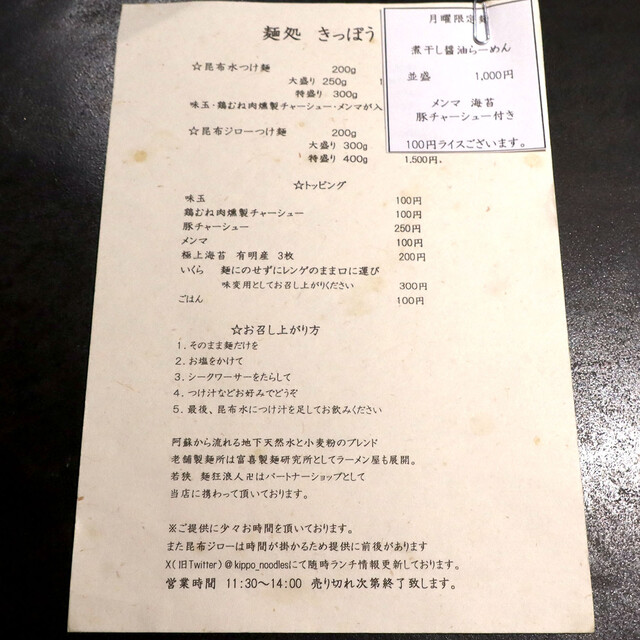 麺処 きっぽう
☆昆布水つけ麺 200g
大盛り 250g 1
特盛り 300g
味玉・鶏むね肉燻製チャーシュー・メンマが入
☆昆布ジローつけ麺 200g
大盛り 300g
特盛り 400g 1,500円、
月曜限定麺
煮干し醤油らーめん
並盛 1,000円
メンマ 海苔
豚チャーシュー付き
100円ライスございます。
☆トッピング
味玉 100円
鶏むね肉燻製チャーシュー 100円
豚チャーシュー 250円
メンマ 100円
極上海苔 有明産 3枚 200円
いくら 麺にのせずにレンゲのまま口に運び
味変用としてお召し上がりください 300円
ごはん 100円
☆お召し上がり方
1．そのまま麺だけを
2．お塩をかけて
3．シークワーサーをたらして
4．つけ汁などお好みでどうぞ
5．最後、昆布水につけ汁を足してお飲みください
阿蘇から流れる地下天然水と小麦粉のブレンド
老舗製麺所は富喜製麺研究所としてラーメン屋も展開。
若狭 麺狂浪人卍はパートナーショップとして
当店に携わって頂いております。
※ご提供に少々お時間を頂いております。
また昆布ジローは時間が掛かるため提供に前後があります
X(旧Twitter)@kippo_noodlesにて随時ランチ情報更新しております。
営業時間 11:30～14:00 売り切れ次第終了致します。